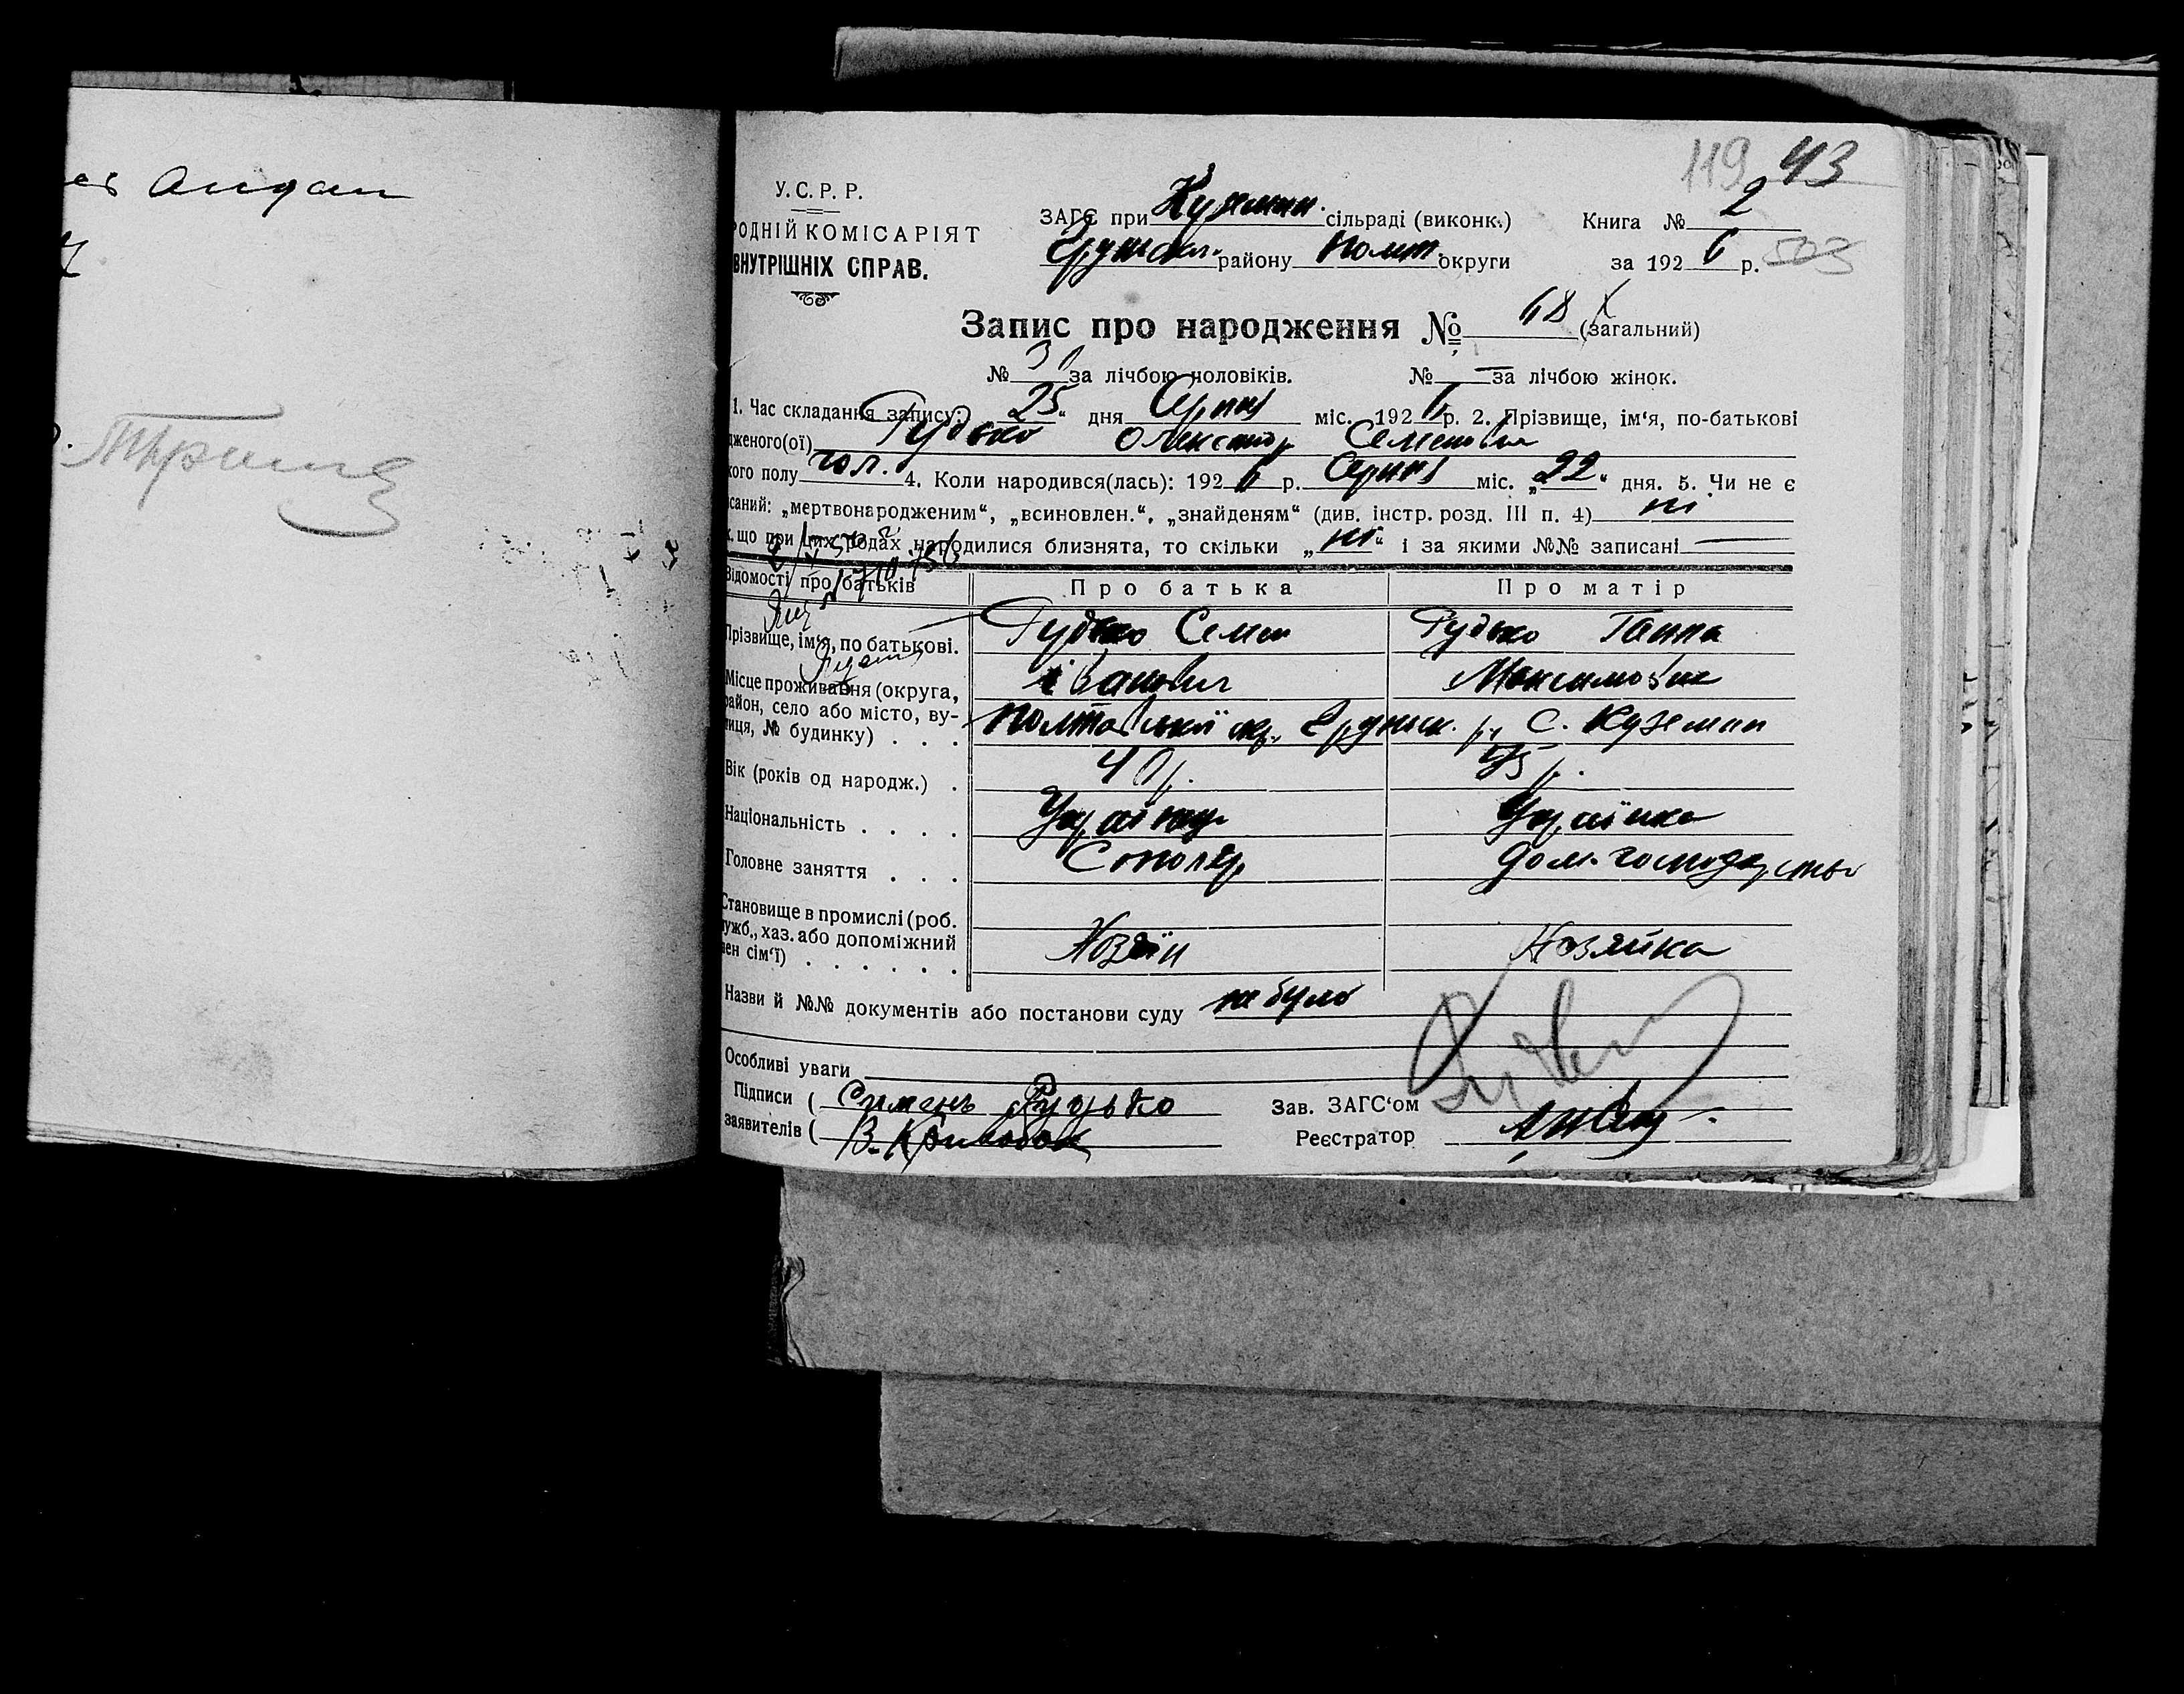 Андан
119 43
У. С. Р. Р.
РОДНІЙ КОМІСАРІЯТ
ВНУТРІШНІХ СПРАВ.
ЗАГС при Куземин. сільраді (виконк.)
Книга № 2
району Полт. округи
за 192 6 р.
Запис про народження № 68 (загальний)
№ за лічбою чоловіків. № — за лічбою жінок.
1. Час складання запису: 25 “ дня Серпня міс. 192 6 р. 2. Прізвище, ім‘я, по-батькові
дженого(ої) Рудько Олександр Семенович
кого полу чол. 4. Коли народився(лась): 192 6 р. Серпня міс. „22“ дня. 5. Чи не є
саний: „мертвонародженим“, „всиновлен.“, „знайденям“ (див. інстр. розд. III п. 4) ні
що при цих родах народилися близнята, то скільки „ні“ і за якими №№ записані —
Відомості про батьків Про батька Про матір
Прізвище, ім‘я, по батькові. Рудько Семен Рудько Ганна
Іванович Максимовна
Місце проживання (округа,
район, село або місто, ву-
лиця, № будинку) . . . Полтавської окр. р., С. Куземин
Вік (років од народж.) . 40 р. 45 р.
Національність . . . . Українец Українка
Головне заняття . . . Столяр дом. господарство
Становище в промислі (роб.
ужб., хаз. або допоміжний
ен сім‘ї) . . . . . . Хозяїн Хозяйка
Назви й №№ документів або постанови суду не було
Особливі уваги
Підписи ( Симень Рудько
Зав. ЗАГС‘ом
заявителів (
Реєстратор